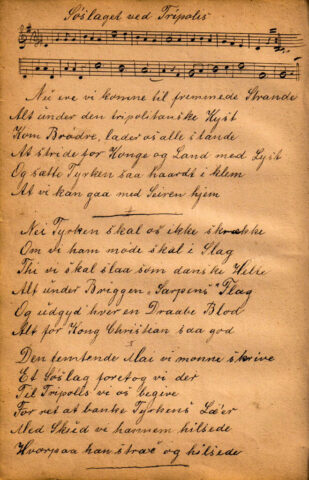 Søslaget ved Tripolis
Nu ere vi komne til fremmede Strande
Alt under den tripolitanske Kyst
Kom Brødre, lader os alle stande
At stride for Konge og Land med Lyst
Og sætte Tyrken saa haardt i klem
At vi kan gaa med Seiren hjem
Nei Tyrken skal os ikke skrække
Om vi ham møde skal i Slag
Thi vi skal slaa som danske Helte
Alt under Briggen „Sarpens" Flag
Og udgyd hver en Draabe Blod
Alt for Kong Christian saa god
3
Den femtende Mai vi monne skrive
Et Søslag foretog vi der
Til Tripolis vi os begive
For ret at banke Tyrkens Læer
Med Skud vi hannem hilsede
Hvorpaa han strax og hilsede